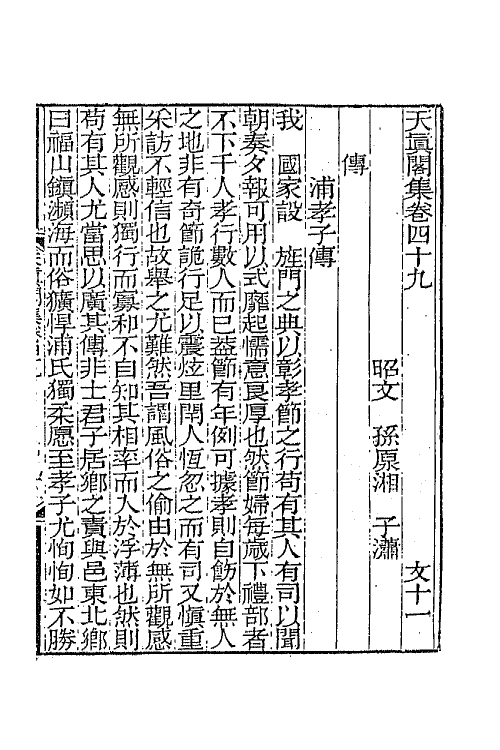 天眞閣集卷四十九　文十一
昭文　孫原湘　子瀟
傳
浦孝子傳
我　國家設　旌門之典以彰孝節之行苟有其人有司以聞
朝奏夕報可用以式靡起懦意良厚也然節婦每歲下禮部者
不下千人孝行數人而已葢節有年例可據孝則自飭於無人
之地非有奇節詭行足以震炫里閈人恆忽之而有司又愼重
采訪不輕信也故舉之尤難然吾謂風俗之偷由於無所觀感
無所觀感則獨行而寡和不自知其相率而入於浮薄也然則
苟有其人尤當思以廣其傳非士君子居鄉之責與邑東北鄉
曰福山鎭瀕海而俗獷悍浦氏獨柔愿至孝子尤恂恂如不勝